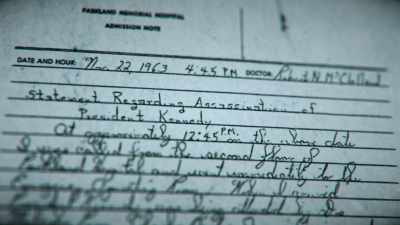 PARKLAND MEMORIAL HOSPITAL
ADMISSION NOTE
DATE AND HOUR Nov. 22, 1963 4:45 P.M. DOCTOR: Robert N. McClelland
Statement Regarding Assassination of
President Kennedy
At approximately 12:45 P.M. on the above date
I was called from the second floor of
Parkland Hospital and went immediately to the
Emergency Operating Room. When I arrived
being attended by